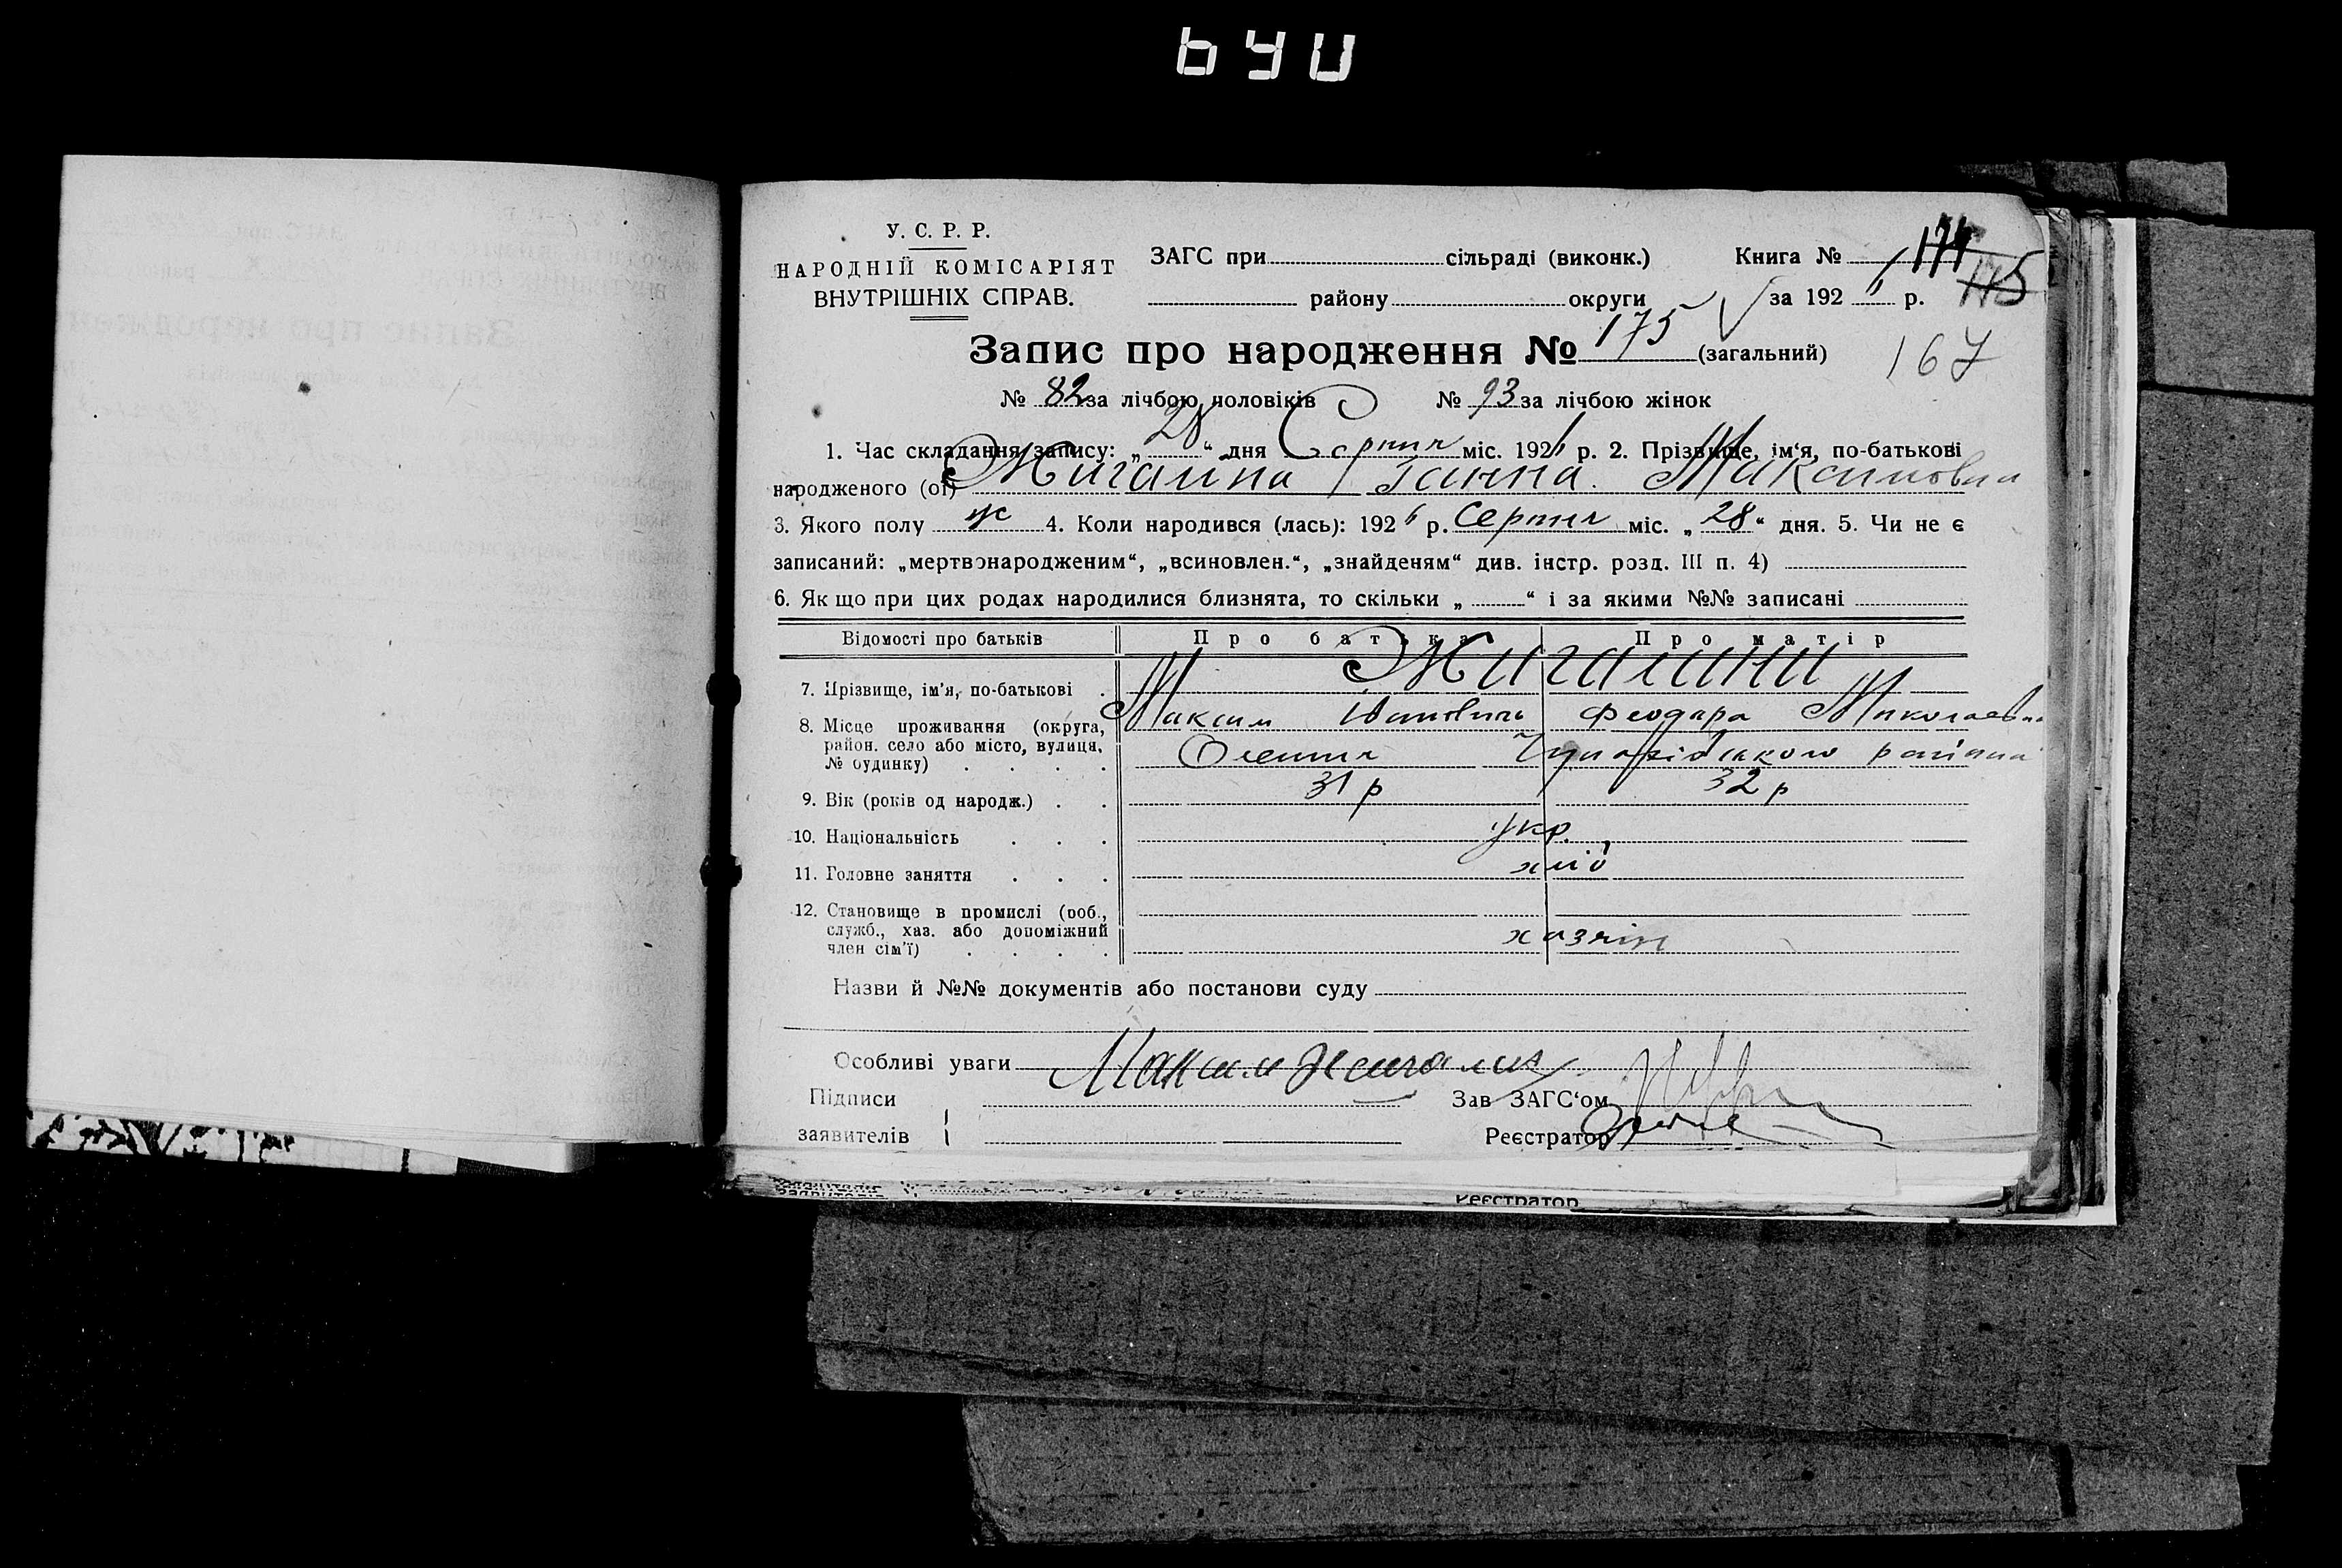 690
У. С. Р. Р.
НАРОДНІЙ КОМІСАРІЯТ
ВНУТРІШНІХ СПРАВ.
ЗАГС при сільраді (виконк.)
району округи
Книга № 174
за 1926 р. 175
167
Запис про народження № 175 (загальний)
№ 82 за лічбою чоловіків № 93 за лічбою жінок
1. Час складання запису: „28“ дня Серпня міс. 1926 р. 2. Прізвище, ім‘я, по-батькові
народженого (ої) Жигаліна Ганна Максимовна
3. Якого полу ж 4. Коли народився (лась): 1926 р. Серпня міс. „28“ дня. 5. Чи не є
записаний: „мертвонародженим“, „всиновлен.“, „знайденям“ див. інстр. розд. III п. 4)
6. Як що при цих родах народилися близнята, то скільки „ “ і за якими №№ записані
Відомості про батьків Про батька Про матір
7. Прізвище, ім’я, по-батькові Жигаліни
Максим Іванович Феодора Миколаевна
8. Місце проживання (округа,
район. село або місто, вулиця,
№ будинку) району
9. Вік (років од народж.) 31 р 32 р
10. Національність укр.
11. Головне заняття хліб
12. Становище в промислі (роб.,
служб., хаз. або допоміжний
член сім’ї) хазяін
Назви й №№ документів або постанови суду
Особливі уваги Максим Жигалин
Підписи
заявителів
Зав ЗАГС‘ом
Реєстратор
Реєстратор